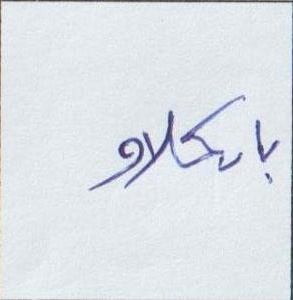 بارکلاو